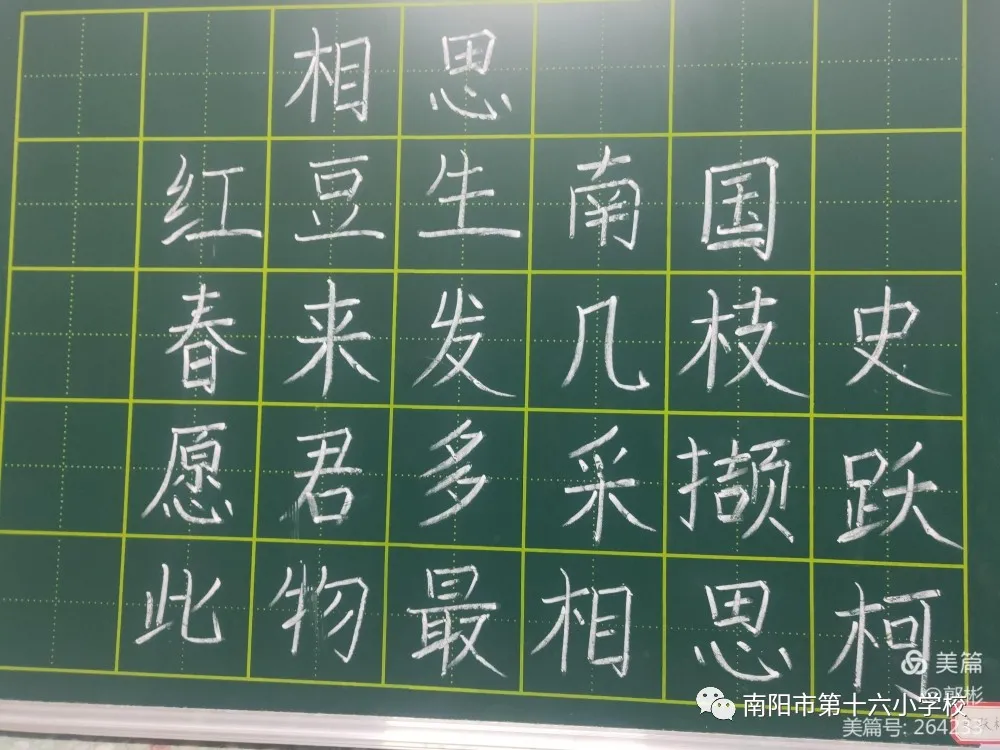 相思
红豆生南国
春来发几枝史
愿君多采撷跃
此物最相思柯
美篇
@郭彬
南阳市第十六小学校
美篇号: 264233